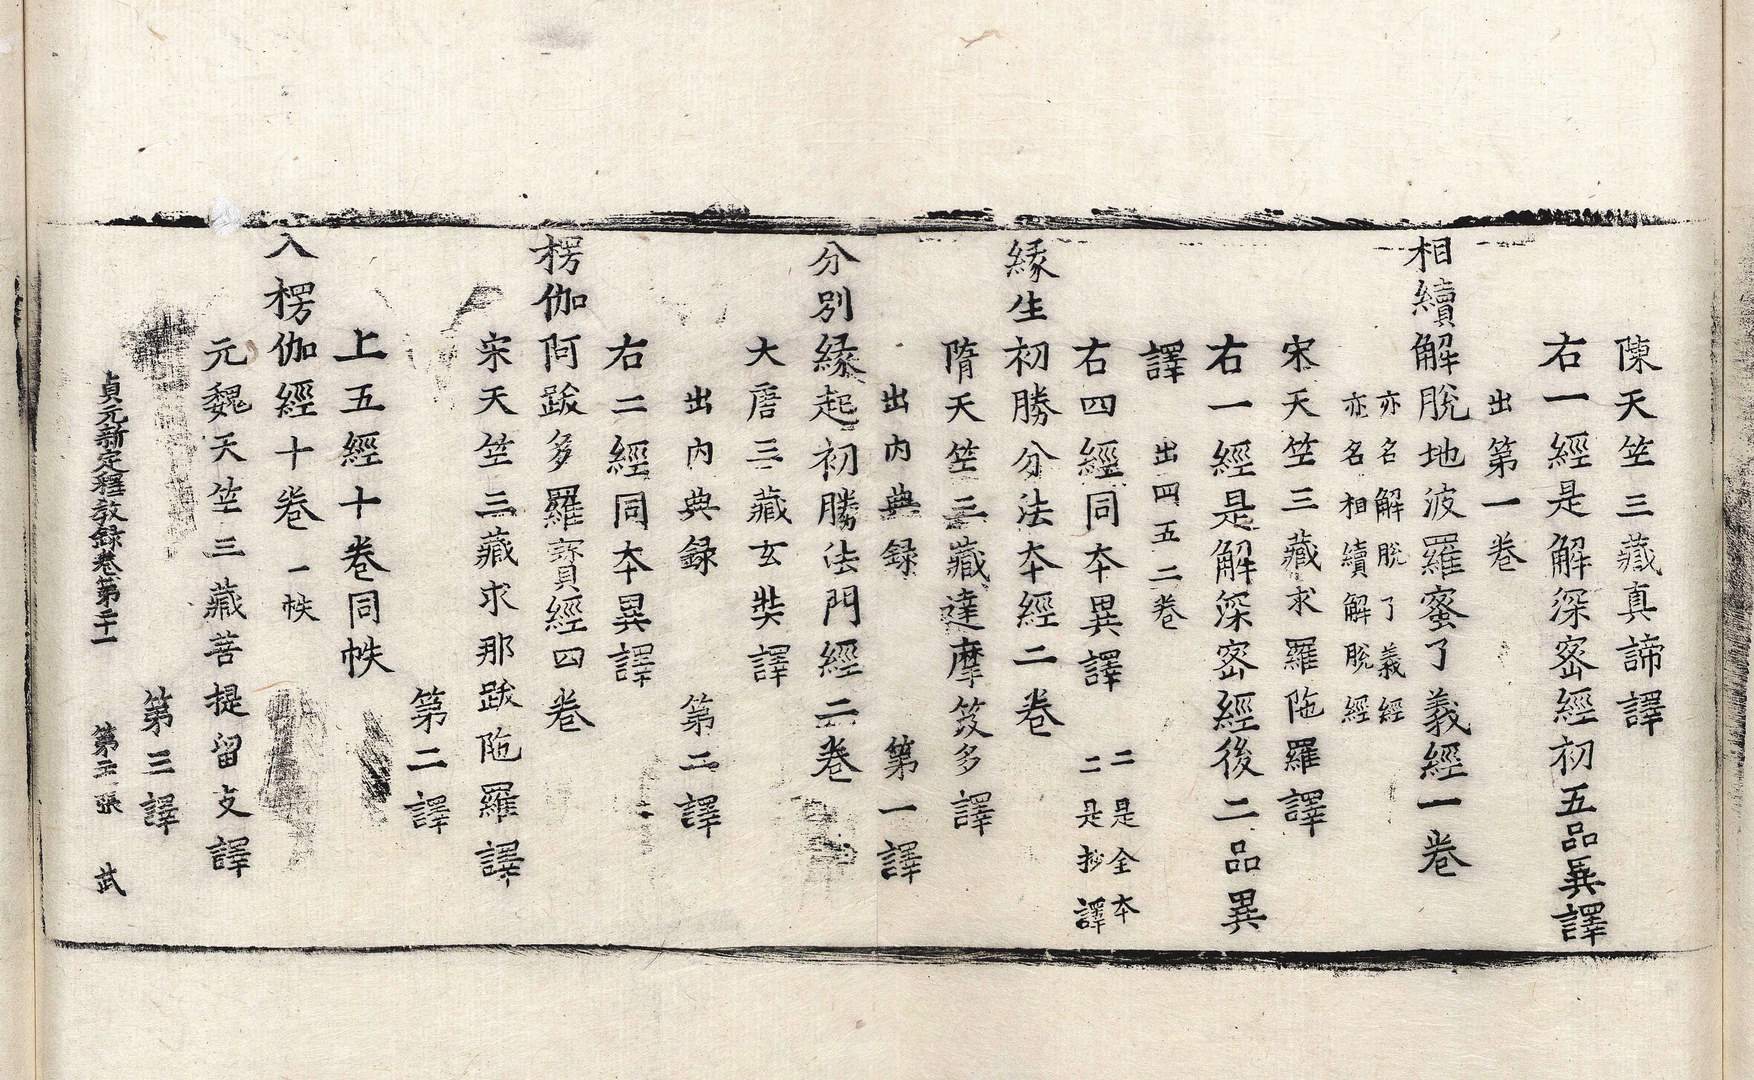 陳天竺三藏真諦譯
右一經是解深密經初五品異譯
出第一卷
相續解脫地波羅蜜了義經一卷
亦名解脫了義經
亦名相續解脫經
宋天竺三藏求羅陁羅譯
右一經是解深密經後二品異
譯 出四五二卷
右四經同本異譯 二是全本
二是抄譯
緣生初勝分法本經二卷
隋天竺三藏達摩笈多譯
出內典録 第一譯
分別緣起初勝法門經二卷
大唐三藏玄奘譯
出內典録 第二譯
右二經同本異譯
楞伽阿跋多羅寶經四卷
宋天竺三藏求那跋陁羅譯
第二譯
上五經十卷同帙
入楞伽經十卷 一帙
元魏天竺三藏菩提留支譯
第三譯
貞元新定釋教録卷第二十一 第二張 武